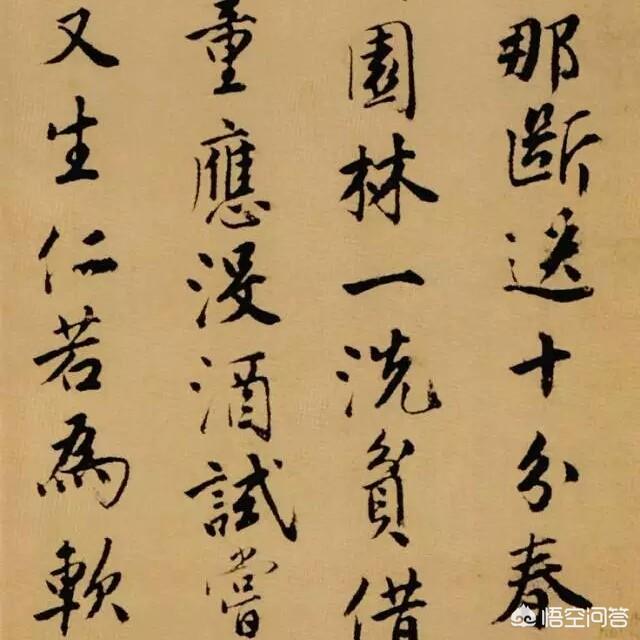 那斷送十分春
園林一洗貧借
重應没酒試嘗
又生仁若為軟
悟空问答